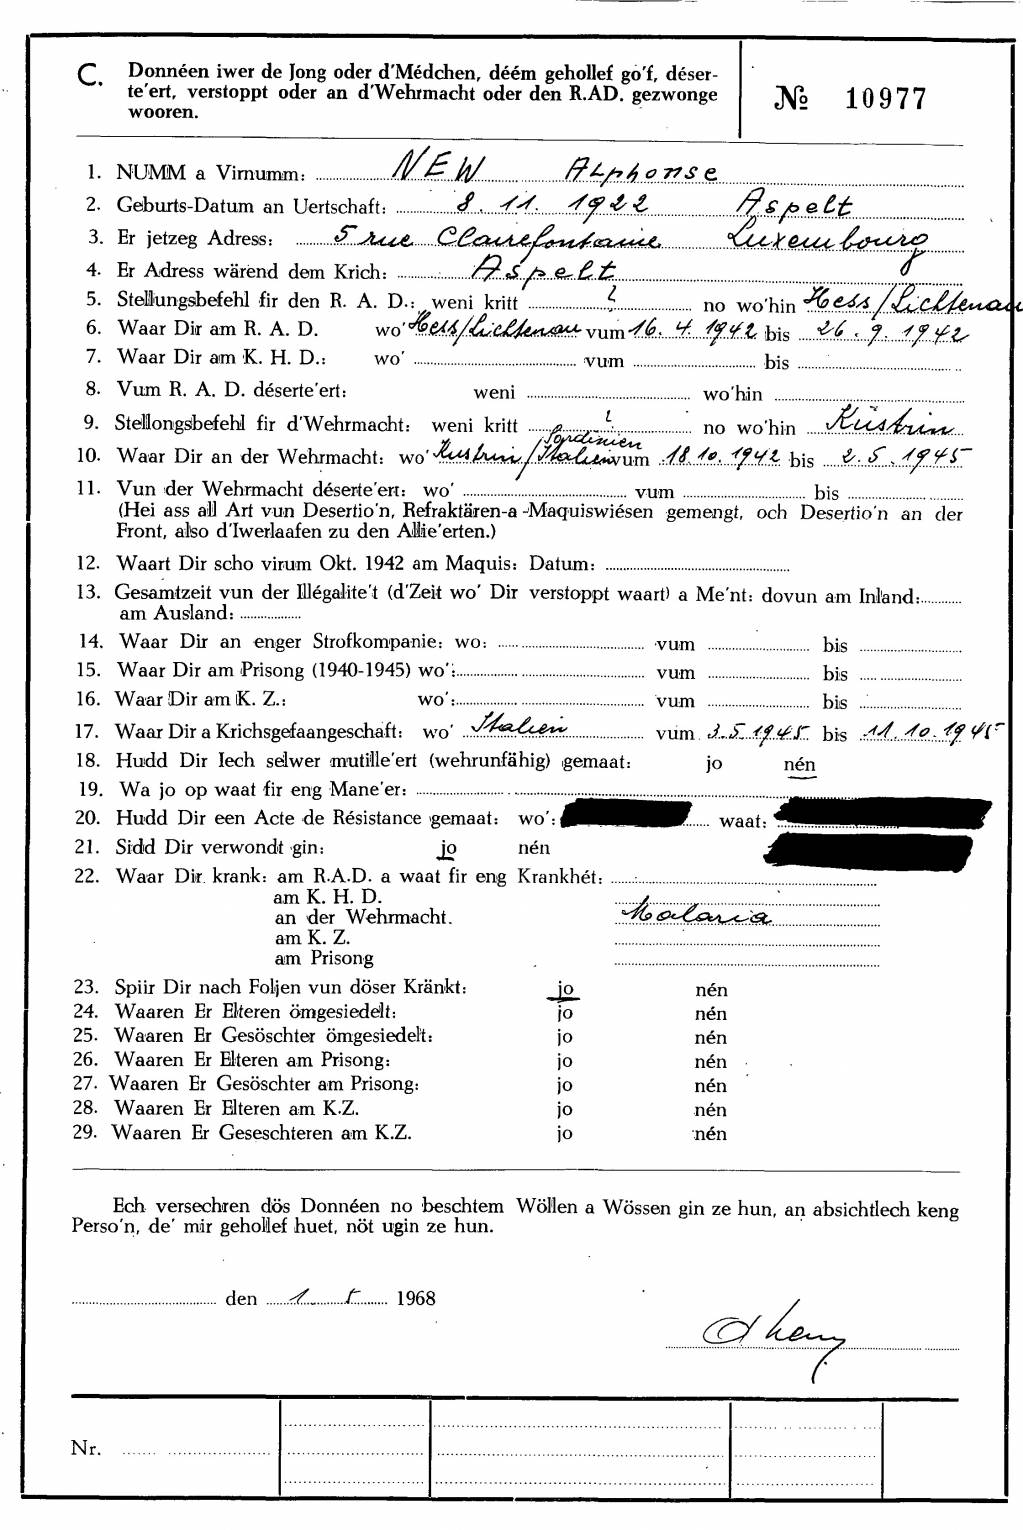 C. Donnéen iwer de Jong oder d'Médchen, déém gehollef go'f, déser-
te'ert, verstoppt oder an d'Wehrmacht oder den R.AD. gezwonge
wooren.
№ 10977
1. NUMM a Virnumm: NEW Alphonse
2. Geburts-Datum an Uertschaft: 8. 11. 1922 Aspelt
3. Er jetzeg Adress: 5 rue Clairefontaine Luxembourg
4. Er Adress wärend dem Krich: Aspelt
5. Stellungsbefehl fir den R. A. D.: weni kritt ? no wo'hin Hess/Lichtenau
6. Waar Dir am R. A. D. wo' Hess/Lichtenau vum 16. 4. 1942 bis 26. 9. 1942
7. Waar Dir am K. H. D.: wo' vum bis
8. Vum R. A. D. déserte'ert: weni wo'hin
9. Stellongsbefehl fir d'Wehrmacht: weni kritt ? no wo'hin Küstrin
10. Waar Dir an der Wehrmacht: wo' Küstrin/Sardinien/Italien vum 18. 10. 1942 bis 2. 5. 1945
11. Vun der Wehrmacht déserte'ert: wo' vum bis
(Hei ass all Art vun Desertio'n, Refraktären-a -Maquiswiésen gemengt, och Desertio'n an der
Front, also d'Iwerlaafen zu den Allie'erten.)
12. Waart Dir scho virum Okt. 1942 am Maquis: Datum:
13. Gesamtzeit vun der Illégalite't (d'Zeit wo' Dir verstoppt waart) a Me'nt: dovun am Inland:
am Ausland:
14. Waar Dir an enger Strofkompanie: wo: vum bis
15. Waar Dir am Prisong (1940-1945) wo': vum bis
16. Waar Dir am K. Z.: wo': vum bis
17. Waar Dir a Krichsgefaangeschaft: wo' Italien vum 3. 5. 1945 bis 11. 10. 1945
18. Hudd Dir Iech selwer mutille'ert (wehrunfähig) gemaat: jo nén
19. Wa jo op waat fir eng Mane'er:
20. Hudd Dir een Acte de Résistance gemaat: wo': waat:
21. Sidd Dir verwondt gin: jo nén
22. Waar Dir krank: am R.A.D. a waat fir eng Krankhét:
am K. H. D.
an der Wehrmacht. Malaria
am K. Z.
am Prisong
23. Spiir Dir nach Foljen vun döser Kränkt: jo nén
24. Waaren Er Elteren ömgesiedelt: jo nén
25. Waaren Er Gesöschter ömgesiedelt: jo nén
26. Waaren Er Elteren am Prisong: jo nén
27. Waaren Er Gesöschter am Prisong: jo nén
28. Waaren Er Elteren am K.Z. jo nén
29. Waaren Er Geseschteren am K.Z. jo nén
Ech versechren dös Donnéen no beschtem Wöllen a Wössen gin ze hun, an absichtlech keng
Perso'n, de' mir gehollef huet, nöt ugin ze hun.
den 1. 5 1968
Nr.